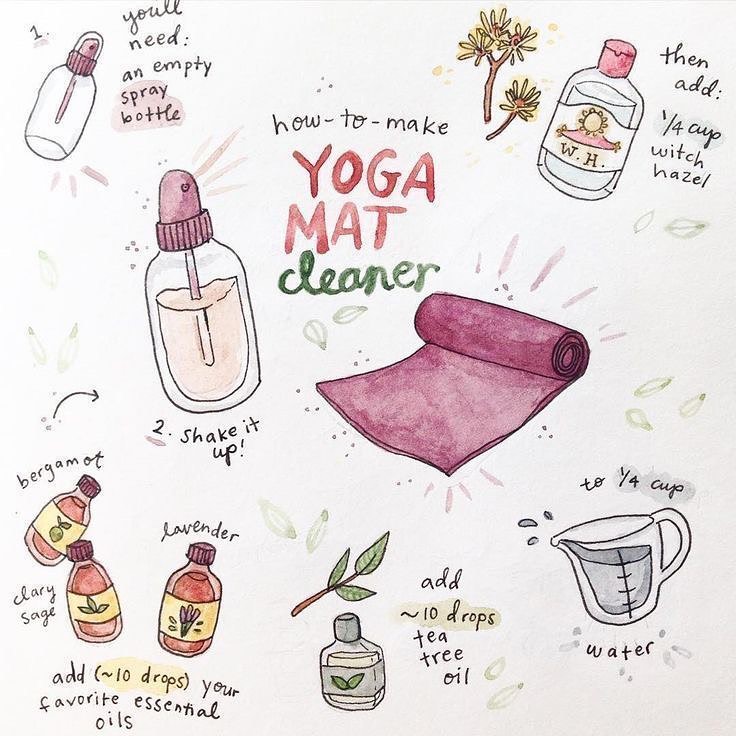 1.
you'll
need:
an empty
spray
bottle
how-to-make
YOGA
MAT
cleaner
W. H.
then
add:
1/4 cup
witch
hazel
to 1/4 cup
water
add
~10 drops
tea
tree
oil
bergamot
clary
sage
lavender
add (~10 drops) your
favorite essential
oils
2. shake it
up!